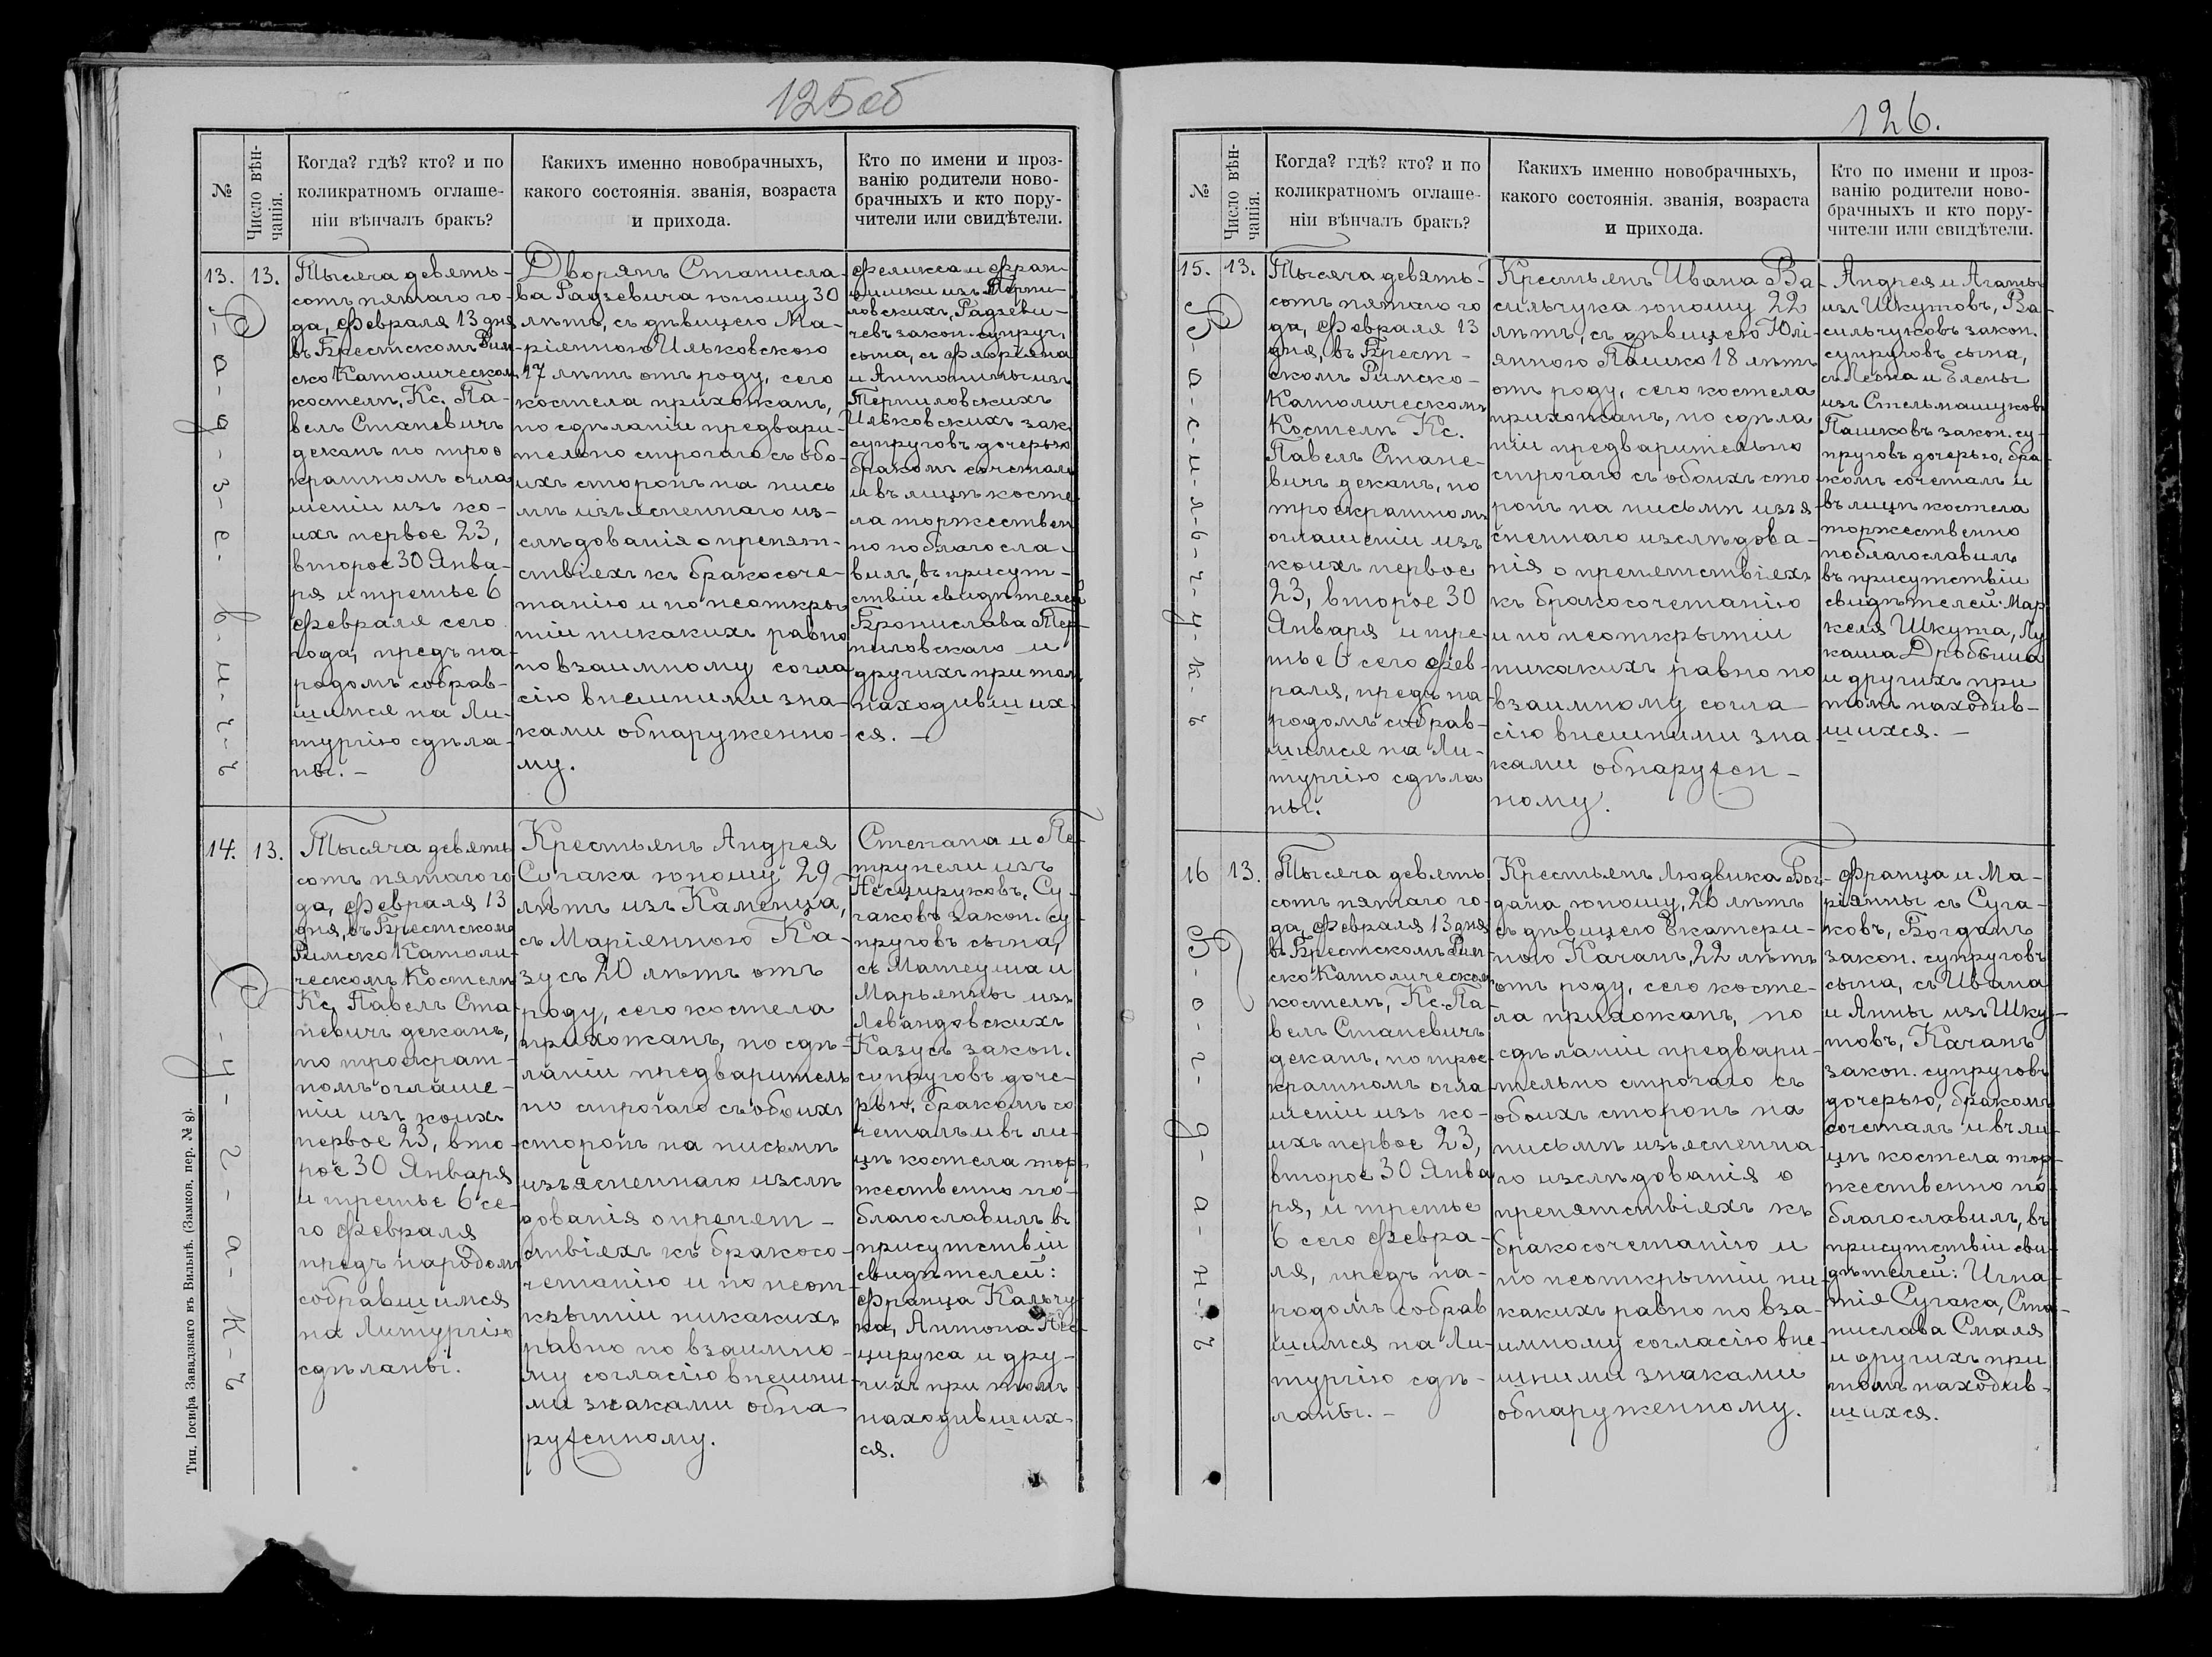 125об
№
Число вѣн-
чанія.
Когда? гдѣ? кто? и по
коликратномъ оглаше-
ніи вѣнчалъ бракъ?
Какихъ именно новобрачныхъ,
какого состоянія. званія, возраста
и прихода.
Кто по имени и проз-
ванію родители ново-
брачныхъ и кто пору-
чители или свидѣтели.
13.
13.
Тысяча девять-
сотъ пятаго го-
да, Февраля 13 дня
въ Брестскомъ Рим
ско Католическом
костелѣ, Кс. Па-
велъ Станевичъ
деканъ по трое
кратномъ огла
шеніи изъ ко-
ихъ первое 23,
второе 30 Янва-
ря и третье 6
Февраля сего
года, предъ на-
родомъ собрав-
шимся на Ли-
тургію сдѣла-
ны. -
Дворянъ Станисла-
ва Радзевича юношу 30
лѣтъ, съ дѣвицею Ма-
ріянною Ильковскою
17 лѣтъ отъ роду, сего
костела прихожанъ,
по сдѣланіи предвари-
тельно строгаго съ обо-
ихъ сторонъ на пись
мѣ изъясненнаго из-
слѣдованія о препят-
ствіяхъ къ бракосоче-
танію и по неоткры
тіи никакихъ равно
по взаимному согла
сію внешними зна-
ками обнаруженно-
му.
Феликса и Фран-
цишки изъ Терпи-
ловскихъ, Радзеви-
чевъ закон. супруг.
сына, съ Флоріяна
и Антонины изъ
Терпиловскихъ
Ильковскихъ зак.
супруговъ дочерью
бракомъ сочеталъ
и въ лицѣ косте
ла торжествен
но поблагосла-
вилъ, въ присут-
ствіи свидѣтелей
Бронислава Тер-
пиловскаго и
другихъ при томъ
находивших-
ся. -
Р-а-д-з-е-в-и-ч-ъ
14.
13.
Тысяча девять
сотъ пятаго го
да, Февраля 13
дня, въ Брестскомъ
Римско Католи-
ческомъ Костелѣ
Кс. Павелъ Ста
невичъ деканъ,
по троекрат-
номъ оглаше-
ніи изъ коихъ
первое 23, вто-
рое 30 Января
и третье 6 се-
го Февраля
предъ народомъ
собравшимся
на Литургію
сдѣланы.
Крестьянъ Андрея
Сугака юношу 29
лѣтъ изъ Каменца,
съ Маріянною Ка-
зусъ 20 лѣтъ отъ
роду, сего костела
прихожанъ, по сдѣ-
ланіи предваритель
но строгаго съ обоихъ
сторонъ на письмѣ
изъясненнаго изслѣ
дованія о препят-
ствіяхъ къ бракосо-
четанію и по неот-
крытіи никакихъ
равно по взаимно-
му согласію внешни
ми знаками обна-
руженному.
Степана и Пе-
трунели изъ
Несцируковъ, Су-
гаковъ закон. су
пруговъ сына,
съ Матеуша и
Марьянны изъ
Левандовскихъ
Казусъ закон.
супруговъ доче-
рью, бракомъ со
четалъ и въ ли-
цѣ костела тор-
жественно по-
благославилъ въ
присутствіи
свидѣтелей:
Франца Кальчу-
ка, Антона Нес-
цирука и дру-
гихъ при томъ
находивших-
ся.
С-у-г-а-к-ъ
Тип. Іосифа Завадзкаго въ Вильнѣ. (Замков. пер. № 8).
126.
№
Число вѣн-
чанія.
Когда? гдѣ? кто? и по
коликратномъ оглаше-
ніи вѣнчалъ бракъ?
Какихъ именно новобрачныхъ,
какого состоянія. званія, возраста
и прихода.
Кто по имени и проз-
ванію родители ново-
брачныхъ и кто пору-
чители или свидѣтели.
15.
13.
Тысяча девять-
сотъ пятаго го
да, Февраля 13
дня, въ Брест-
скомъ Римско-
Католическомъ
Костелѣ Кс.
Павелъ Стане-
вичъ деканъ, по
троекратномъ
оглашеніи изъ
коихъ первое
23, второе 30
Января и тре-
тье 6 сего Фев-
раля, предъ на-
родомъ собрав-
шимся на Ли-
тургію сдѣла
ны.
Крестьянъ Ивана Ва-
сильчука юношу 22
лѣтъ, съ дѣвицею Юлі-
янною Пашко 18 лѣтъ
отъ роду, сего костела
прихожанъ, по сдѣла
ніи предварительно
строгаго съ обоихъ сто-
ронъ на письмѣ изъя-
сненнаго изслѣдова-
нія о препятствіяхъ
къ бракосочетанію
и по неоткрытіи
никакихъ равно по
взаимному согла-
сію внешними зна
ками обнаружен-
ному.
Андрея и Агаты
изъ Шкутовъ, Ва-
сильчуковъ закон.
супруговъ сына,
съ Леона и Елены
изъ Стельмашуковъ
Пашковъ закон. су-
пруговъ дочерью, бра-
комъ сочеталъ и
въ лицѣ костела
торжественно
поблагославилъ
въ присутствіи
свидѣтелей: Мар
келя Шкута, Лу
каша Дробыша
и другихъ при
томъ находив-
шихся. -
В-а-с-и-л-ь-ч-у-к-ъ
16
13.
Тысяча девять
сотъ пятаго го-
да, Февраля 13 дня
въ Брестскомъ Рим
ско Католическом
костелѣ, Кс. Па-
велъ Станевичъ
деканъ, по трое-
кратномъ огла
шеніи изъ ко-
ихъ первое 23,
второе 30 Янва
ря, и третье
6 сего Февра-
ля, предъ на-
родомъ собрав
шимся на Ли-
тургію сдѣ-
ланы. -
Крестьянъ Людвика Бог-
дана юношу, 20 лѣтъ
съ дѣвицею Екатери-
ною Качанъ, 22 лѣтъ
отъ роду, сего косте-
ла прихожанъ, по
сдѣланіи предвари-
тельно строгаго съ
обоихъ сторонъ на
письмѣ изъясненна
го изслѣдованія о
препятствіяхъ къ
бракосочетанію и
по неоткрытіи ни-
какихъ равно по вза-
имному согласію вне
шними знаками
обнаруженному.
Франца и Ма-
ріянны съ Суга-
ковъ, Богданъ
закон. супруговъ
сына, съ Ивана
и Анны изъ Шку-
товъ, Качанъ
закон. супруговъ
дочерью, бракомъ
сочеталъ и въ ли-
цѣ костела тор-
жественно по-
благославилъ, въ
присутствіи сви-
дѣтелей: Игна-
тія Сугака, Ста-
нислава Смаля
и другихъ при
томъ находив-
шихся.
Б-о-г-д-а-н-ъ